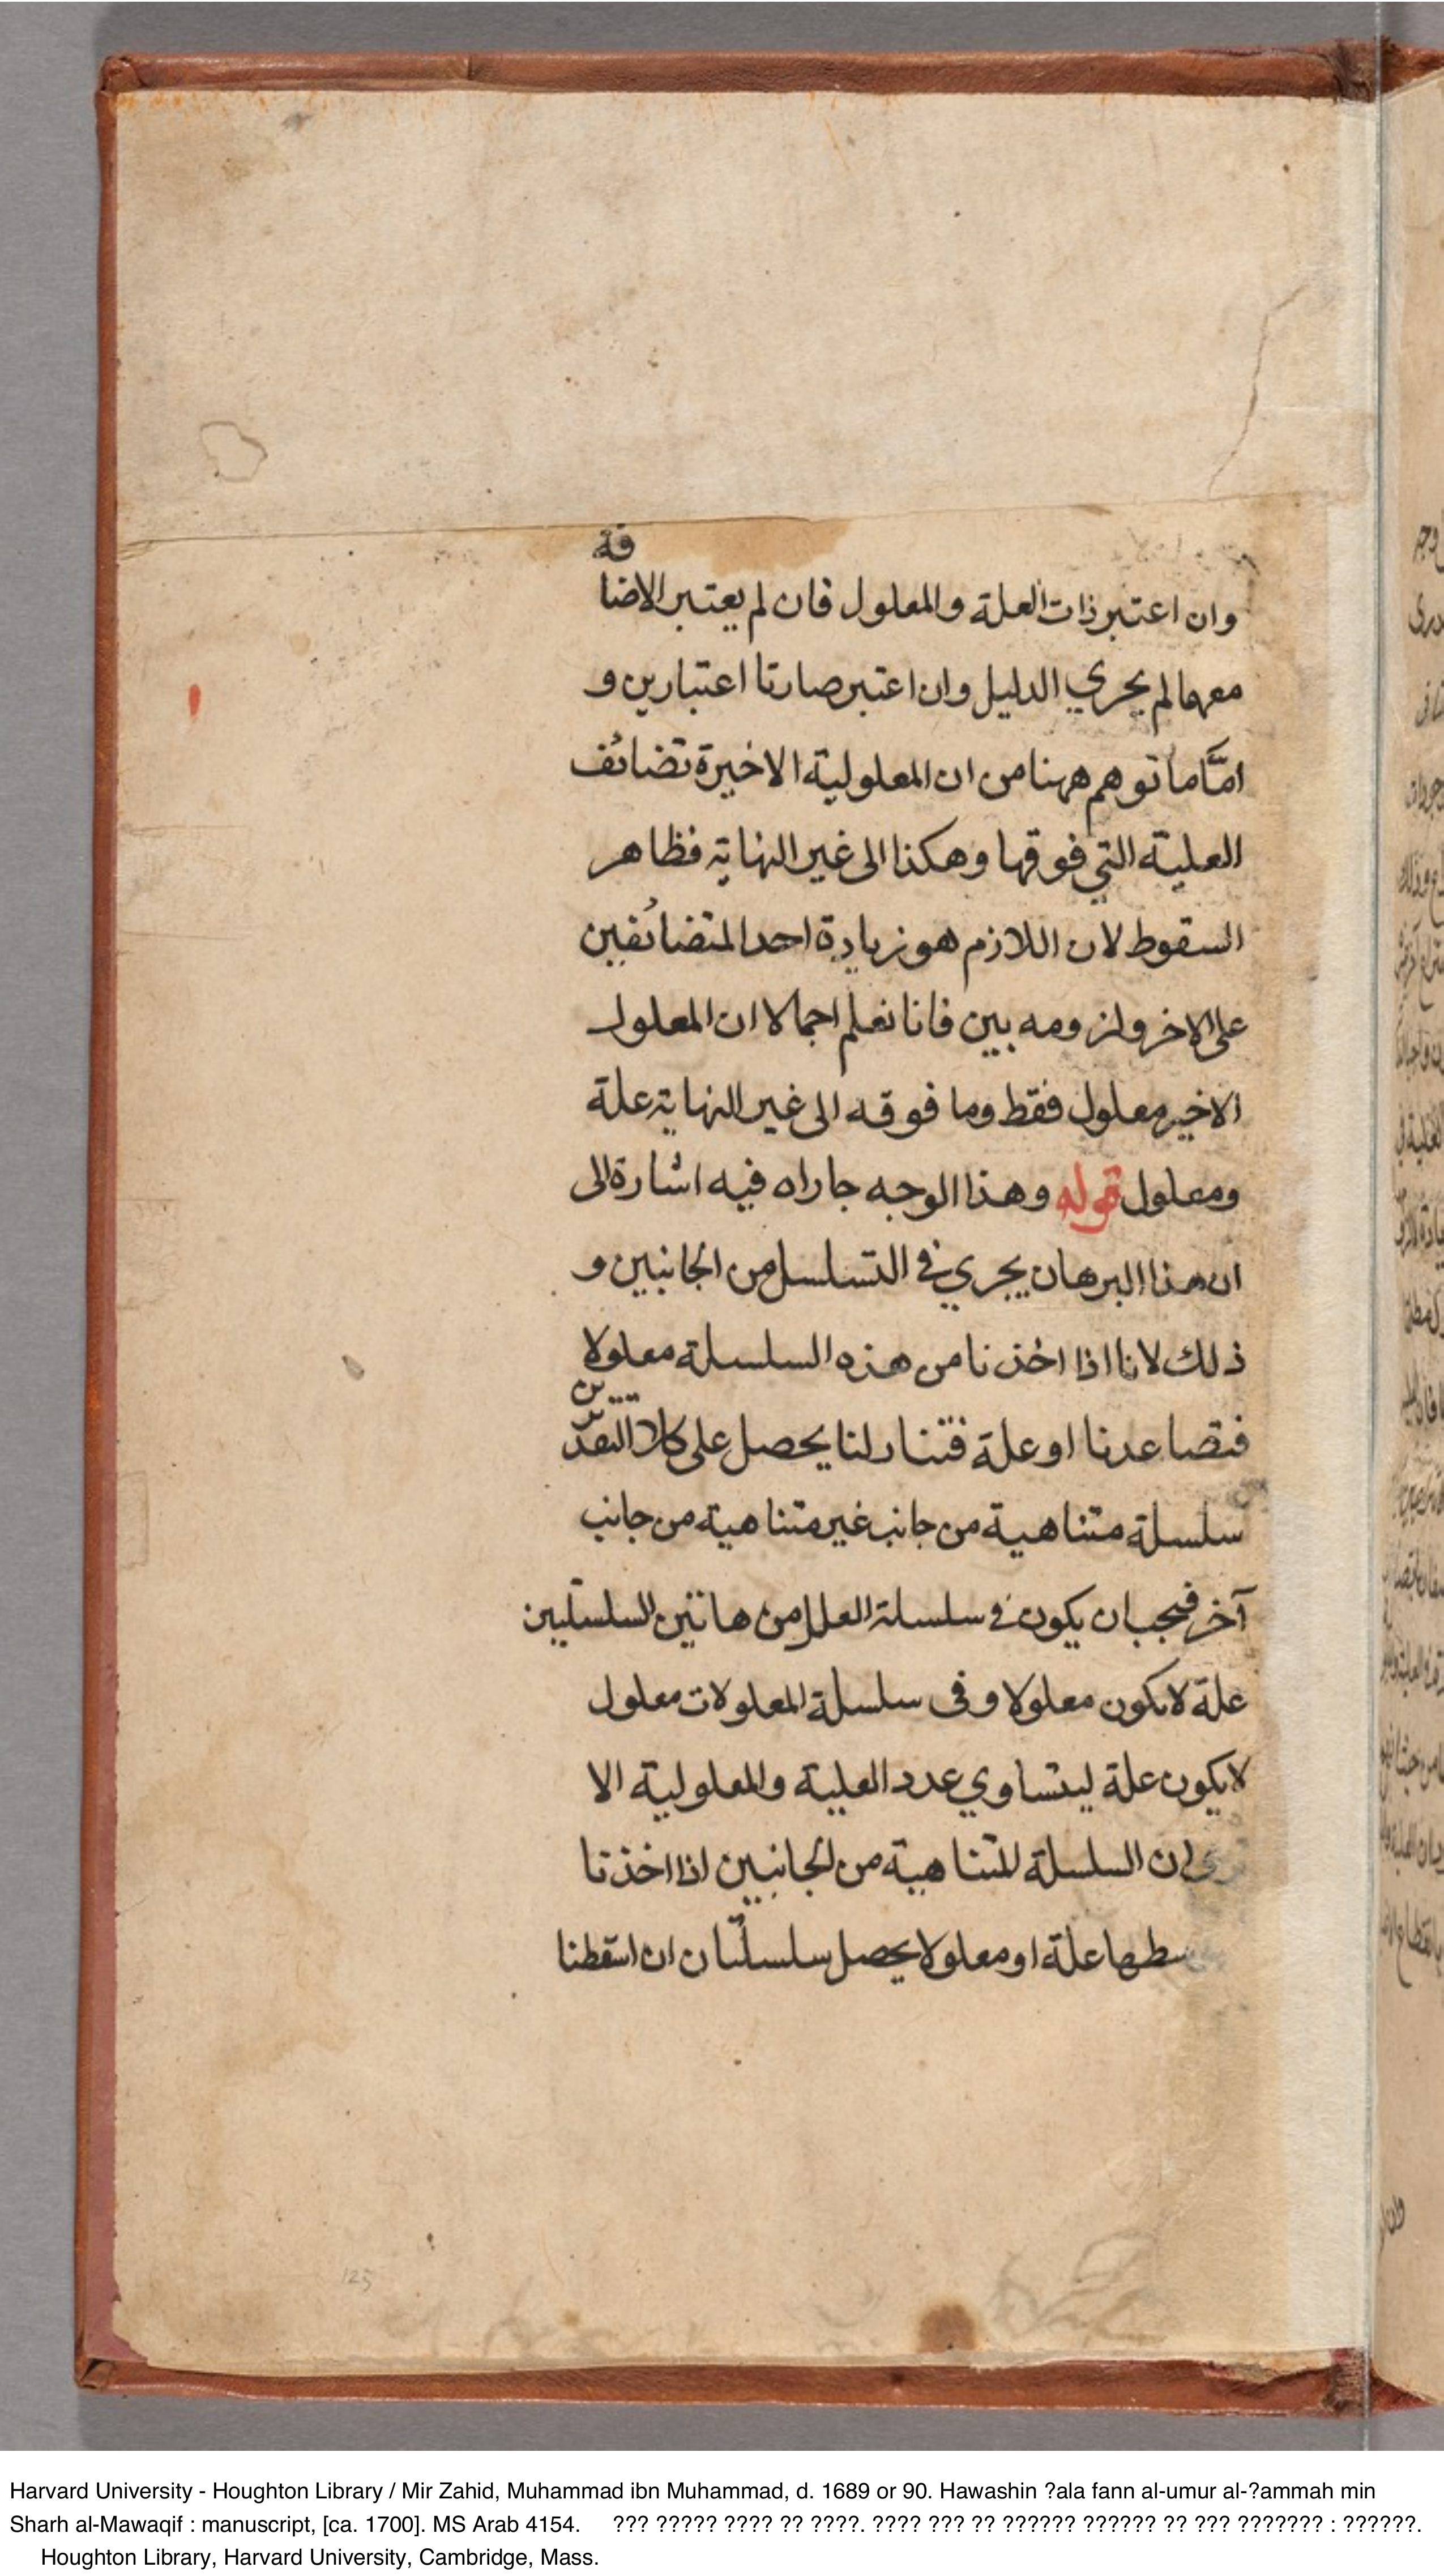 وان اعتبر ذات العلة والمعلول فان لم يعتبر الاضافة
معهما لم يجري الدليل وان اعتبر صارتا اعتبارين و
امّا ما توهم ههنا من ان المعلولية الاخيرة تضائف
العلية التي فوقها وهكذا الى غير النهاية فظاهر
السقوط لان اللازم هو زيادة احد المتضائفين
على الاخر ولزومه بين فانا نعلم اجمالا ان المعلول
الاخير معلول فقط وما فوقه الى غير النهاية علة
ومعلول قوله وهذا الوجه جاراه فيه اشارة الى
ان هذا البرهان يجري في التسلسل من الجانبين و
ذلك لانا اذا اخذنا من هذه السلسلة معلولا
فتصاعدنا او علة فتنازلنا يحصل على كلا التقديرين
سلسلة متناهية من جانب غير متناهية من جانب
آخر فيجب ان يكون في سلسلة العلل من هاتين السلسلتين
علة لا يكون معلولا وفى سلسلة المعلولات معلول
لا يكون علة ليتساوي عدد العلية والمعلولية الا
ان السلسلة المتناهية من الجانبين اذا اخذنا
علة او معلولا يحصل سلسلتان ان اسقطنا
125
Harvard University - Houghton Library / Mir Zahid, Muhammad ibn Muhammad, d. 1689 or 90. Hawashin ?ala fann al-umur al-?ammah min
Sharh al-Mawaqif : manuscript, [ca. 1700]. MS Arab 4154. ??? ????? ???? ?? ????. ???? ??? ?? ?????? ?????? ?? ??? ??????? : ??????.
Houghton Library, Harvard University, Cambridge, Mass.